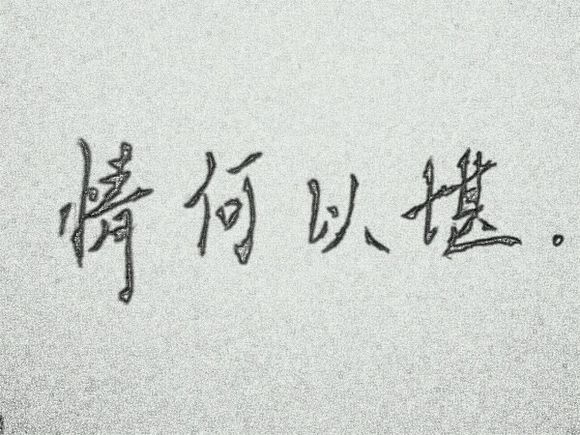 情何以堪.